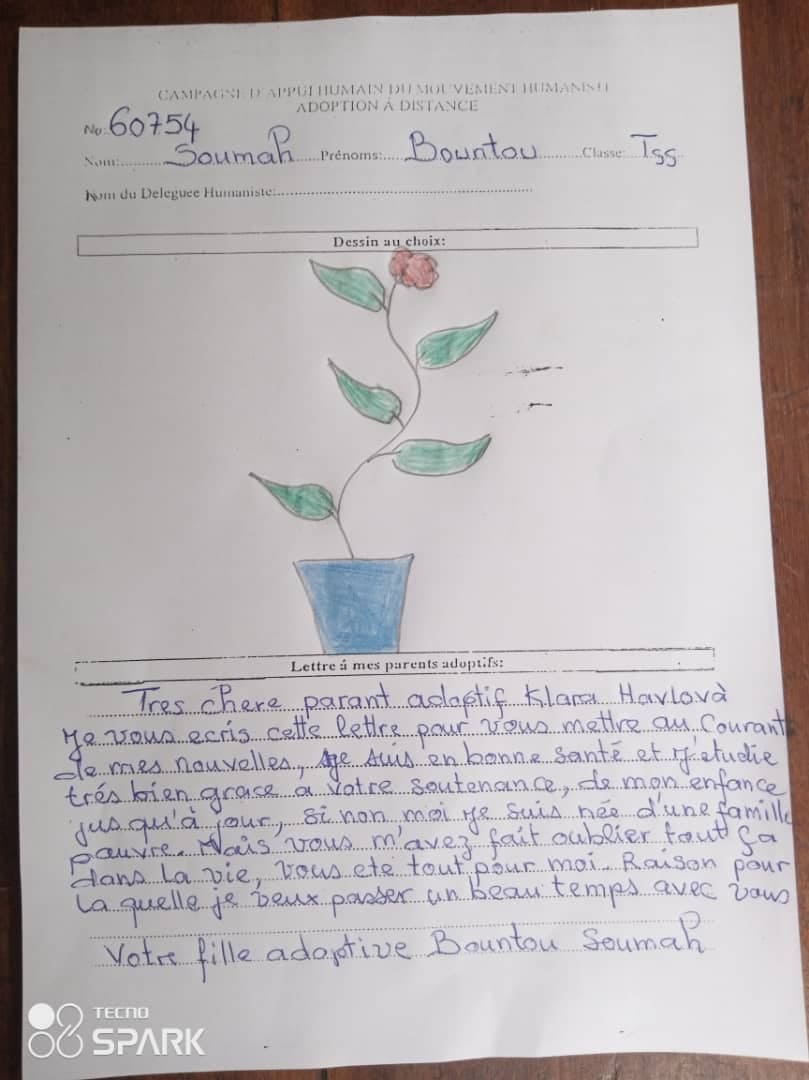 CAMPAGNE D'APPUI HUMAIN DU MOUVEMENT HUMANISTE
ADOPTION Á DISTANCE
No: 60754
Nom:......... Soumah .....Prénoms:..... Bountou .........Classe: Tss
Nom du Deleguee Humaniste:.......................................................
Dessin au choix:
Lettre á mes parents adoptifs:
Tres chere parant adoptif Klara Havlovà
Je vous ecris cette lettre pour vous mettre au Courant
de mes nouvelles, Je suis en bonne santé et J'etudie
trés bien grace a votre soutenance, de mon enfance
jusqu'à jour, si non moi je suis née d'une famille
pauvre. Mais vous m'avez fait oublier tout ça
dans la vie, vous ete tout pour moi. Raison pour
la quelle je veux passer un beau temps avec vous
Votre fille adoptive Bountou Soumah
TECNO
SPARK